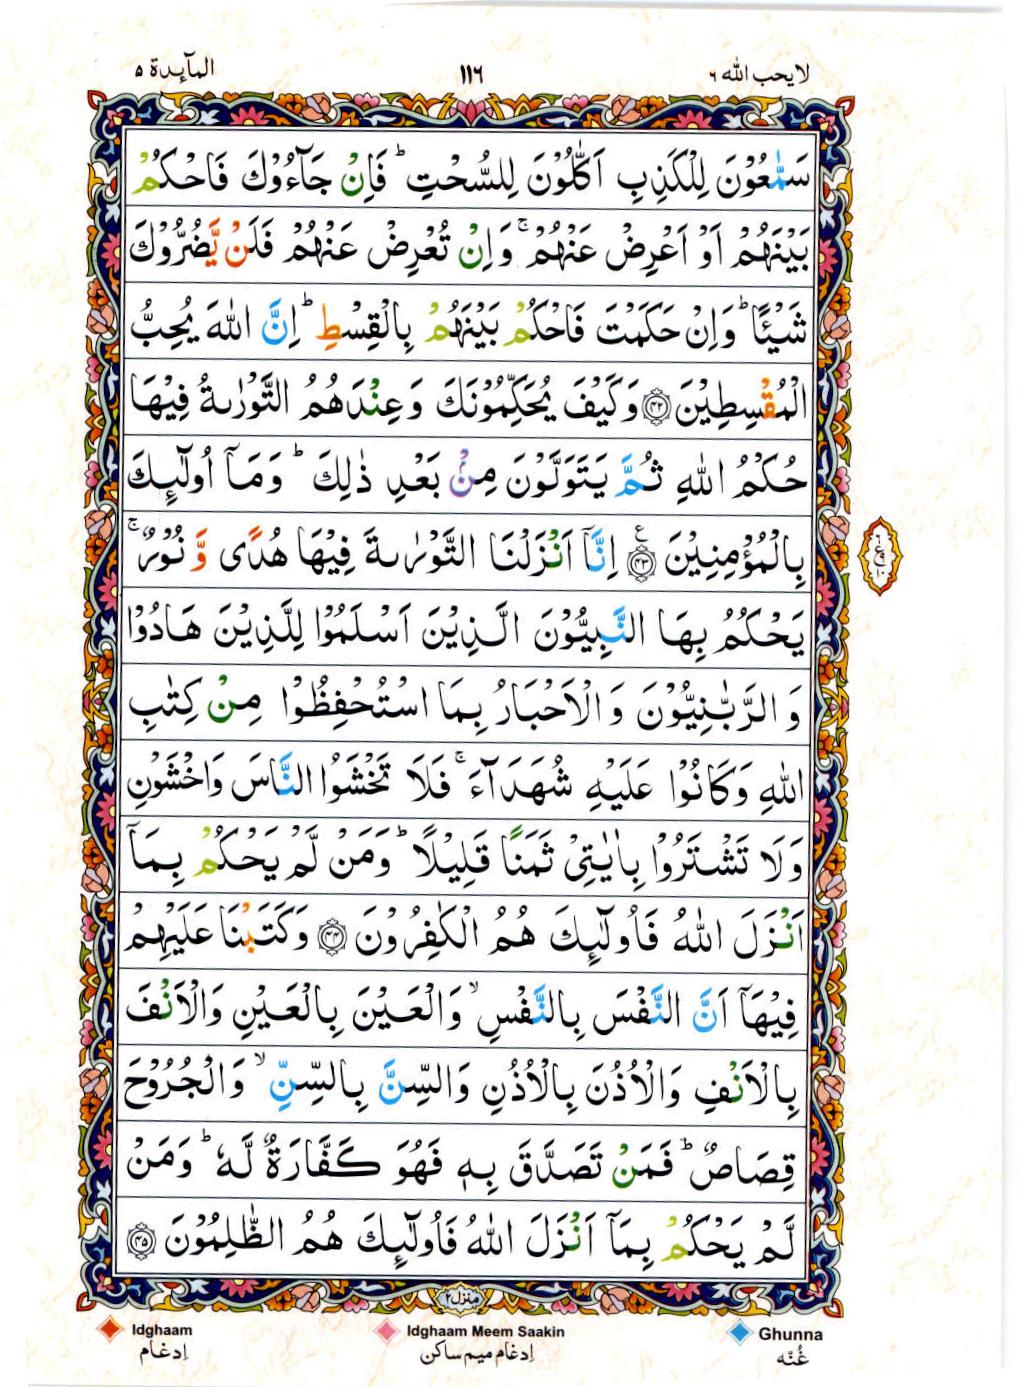 لا يحب الله ٦
١١٦
المآئدة ٥
سَمّٰعُوْنَ لِلْكَذِبِ اَكّٰلُوْنَ لِلسُّحْتِ ؕ فَاِنْ جَآءُوْكَ فَاحْكُمْ
بَيْنَهُمْ اَوْ اَعْرِضْ عَنْهُمْ ۚ وَاِنْ تُعْرِضْ عَنْهُمْ فَلَنْ يَّضُرُّوْكَ
شَيْـًٔا ؕ وَاِنْ حَكَمْتَ فَاحْكُمْ بَيْنَهُمْ بِالْقِسْطِ ؕ اِنَّ اللّٰهَ يُحِبُّ
الْمُقْسِطِيْنَ ﴿۴۲﴾ وَكَيْفَ يُحَكِّمُوْنَكَ وَعِنْدَهُمُ التَّوْرٰىةُ فِيْهَا
حُكْمُ اللّٰهِ ثُمَّ يَتَوَلَّوْنَ مِنْۢ بَعْدِ ذٰلِكَ ؕ وَمَاۤ اُولٰٓئِكَ
بِالْمُؤْمِنِيْنَ ﴿۴۳﴾ ع اِنَّاۤ اَنْزَلْنَا التَّوْرٰىةَ فِيْهَا هُدًى وَّ نُوْرٌ ۚ
يَحْكُمُ بِهَا النَّبِيُّوْنَ الَّذِيْنَ اَسْلَمُوْا لِلَّذِيْنَ هَادُوْا
وَ الرَّبّٰنِيُّوْنَ وَ الْاَحْبَارُ بِمَا اسْتُحْفِظُوْا مِنْ كِتٰبِ
اللّٰهِ وَكَانُوْا عَلَيْهِ شُهَدَآءَ ۚ فَلَا تَخْشَوُا النَّاسَ وَاخْشَوْنِ
وَلَا تَشْتَرُوْا بِاٰيٰتِيْ ثَمَنًا قَلِيْلًا ؕ وَمَنْ لَّمْ يَحْكُمْ بِمَاۤ
اَنْزَلَ اللّٰهُ فَاُولٰٓئِكَ هُمُ الْكٰفِرُوْنَ ﴿۴۴﴾ وَكَتَبْنَا عَلَيْهِمْ
فِيْهَاۤ اَنَّ النَّفْسَ بِالنَّفْسِ ۙ وَالْعَيْنَ بِالْعَيْنِ وَالْاَنْفَ
بِالْاَنْفِ وَالْاُذُنَ بِالْاُذُنِ وَالسِّنَّ بِالسِّنِّ ۙ وَالْجُرُوْحَ
قِصَاصٌ ؕ فَمَنْ تَصَدَّقَ بِهٖ فَهُوَ كَفَّارَةٌ لَّهٗ ؕ وَمَنْ
لَّمْ يَحْكُمْ بِمَاۤ اَنْزَلَ اللّٰهُ فَاُولٰٓئِكَ هُمُ الظّٰلِمُوْنَ ﴿۴۵﴾
منزل ٢
Idghaam
Idghaam Meem Saakin
Ghunna
اِدغام
اِدغام میم ساکن
غُنّه